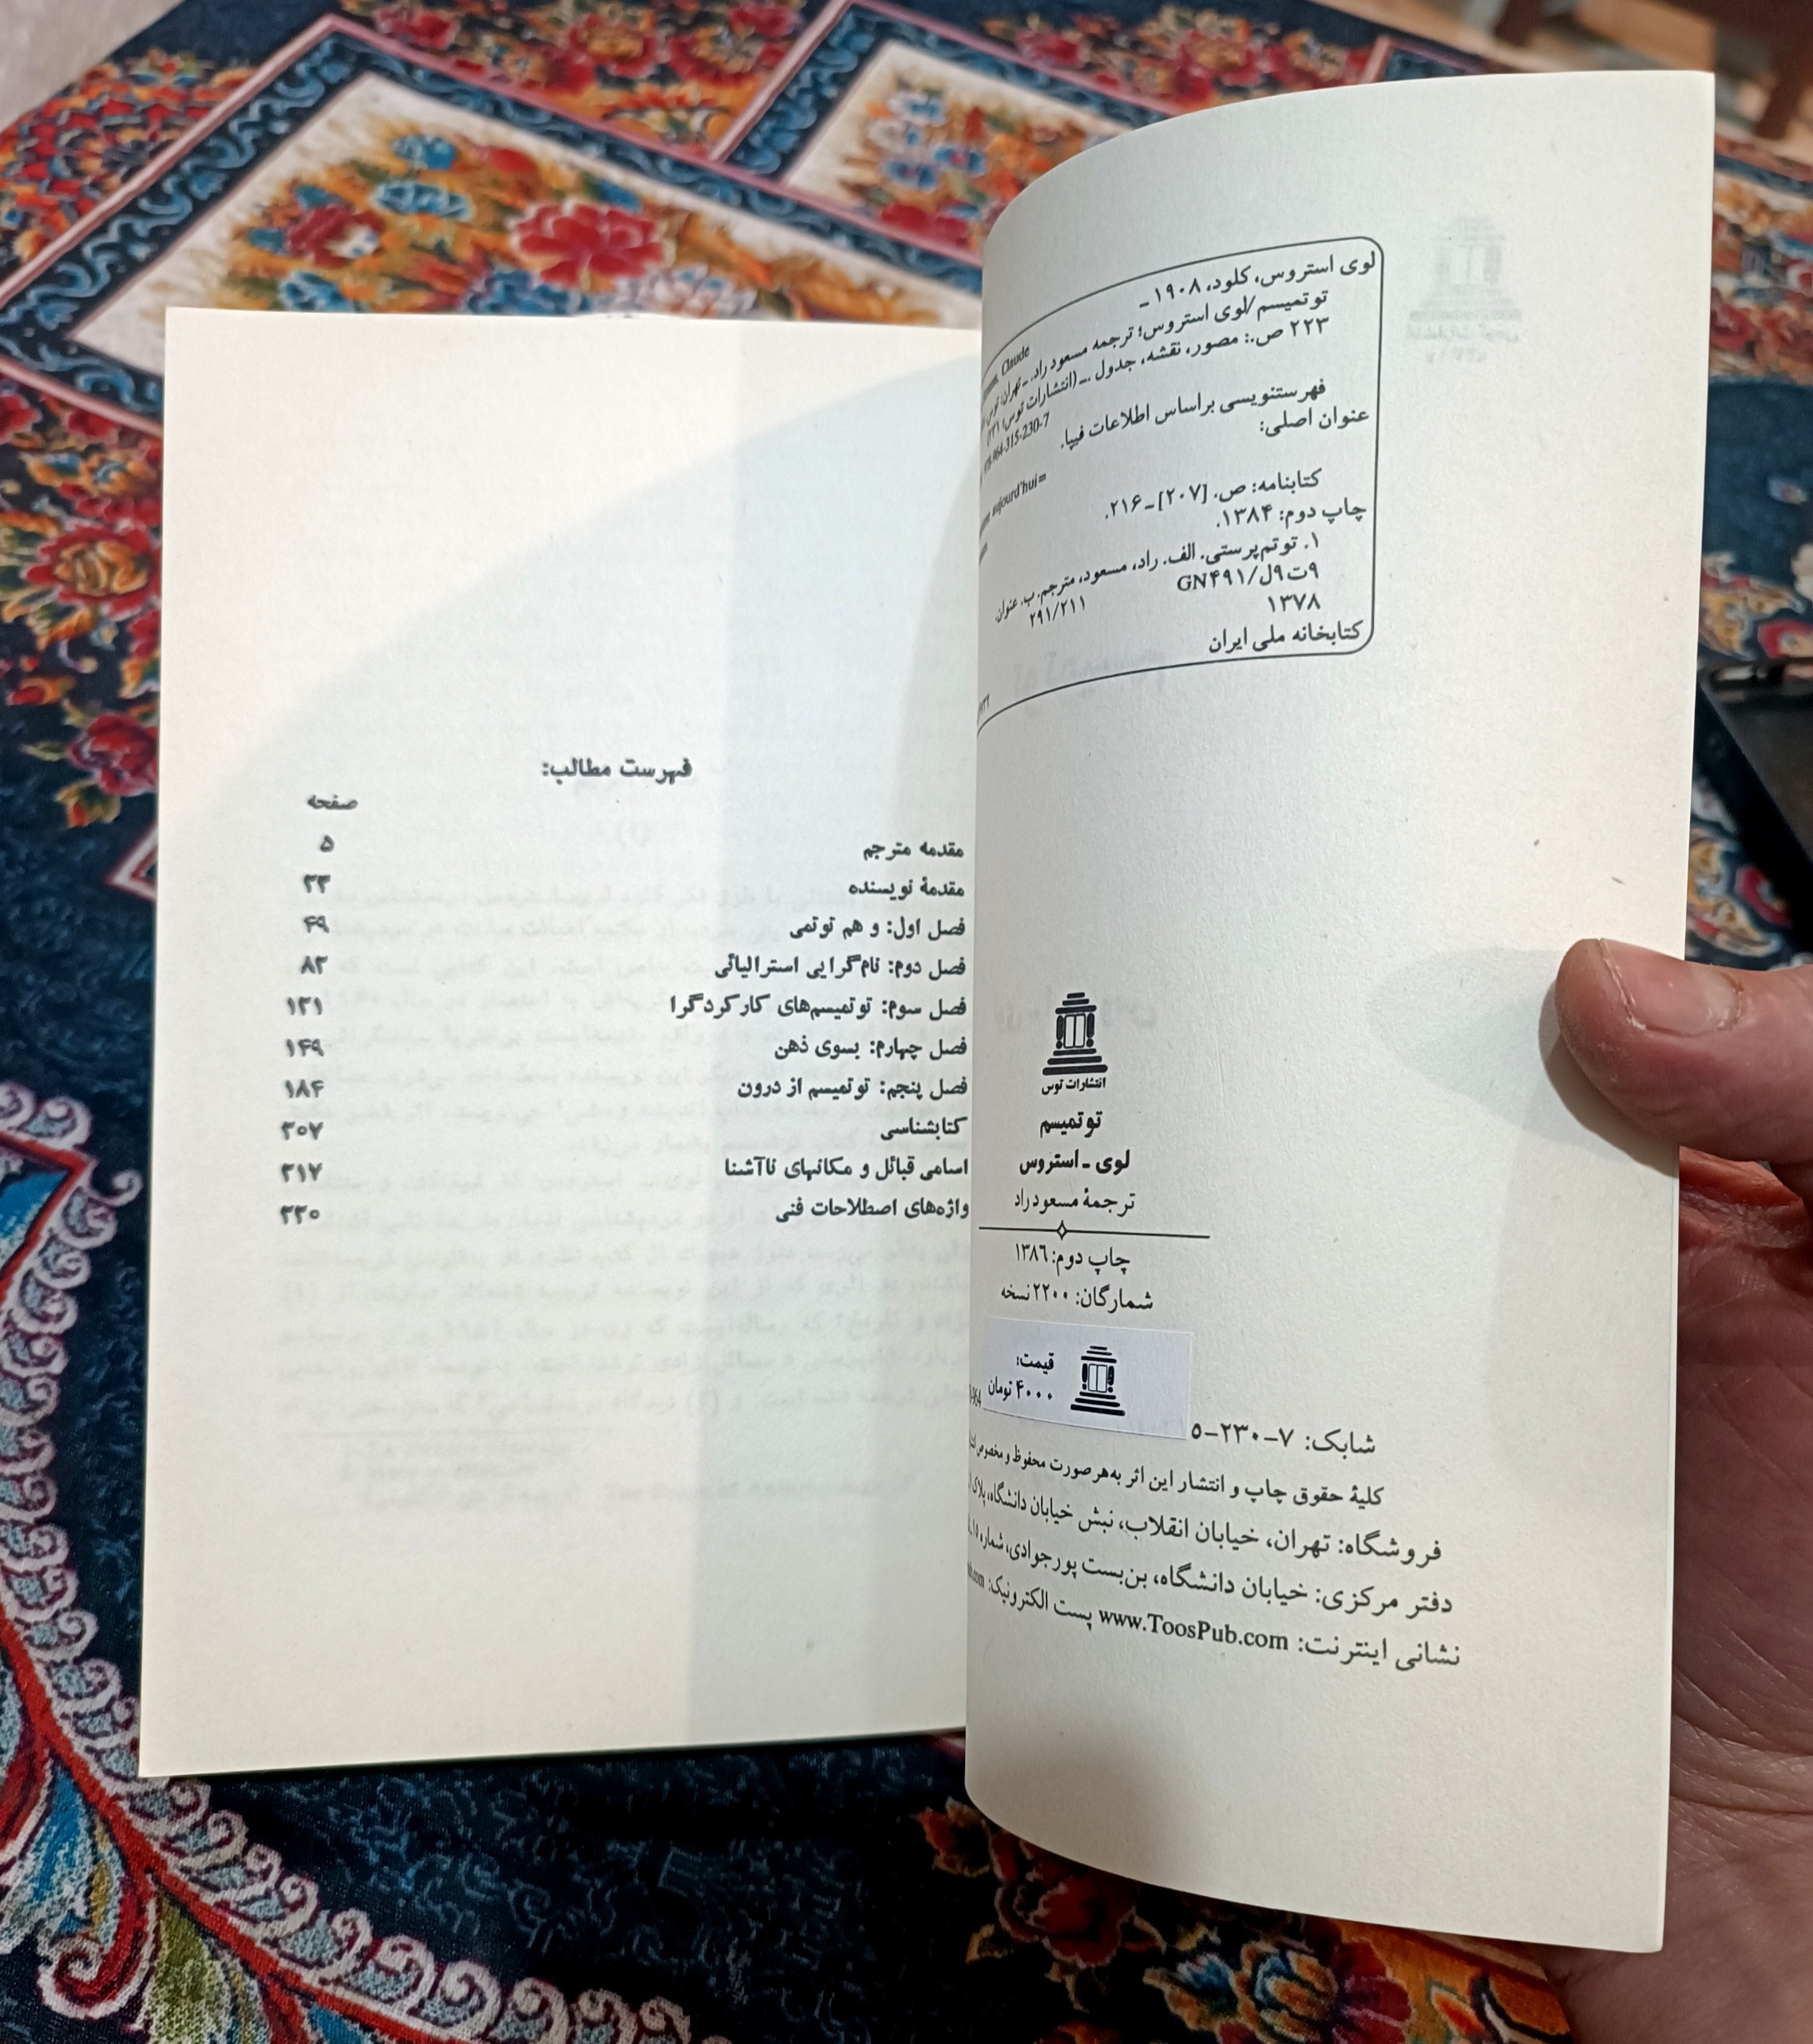 لوی استروس، کلود، ۱۹۰۸ –
Claude
توتمیسم/لوی استروس؛ ترجمه مسعود راد. – تهران: توس
۲۲۳ ص.: مصور، نقشه، جدول. – (انتشارات توس؛
964-315-230-7
فهرستنویسی براساس اطلاعات فیپا.
عنوان اصلی:
aujourd'hui=
کتابنامه: ص. [۲۰۷] – ۲۱۶.
چاپ دوم: ۱۳۸۴.
۱. توتم‌پرستی. الف. راد، مسعود، مترجم. ب. عنوان.
۹ت۹ل/GN۴۹۱
۲۹۱/۲۱۱
۱۳۷۸
کتابخانه ملی ایران
انتشارات توس
توتمیسم
لوی – استروس
ترجمهٔ مسعود راد
چاپ دوم: ۱۳۸۶
شمارگان: ۲۲۰۰ نسخه
قیمت:
۴۰۰۰ تومان
شابک: ۷–۲۳۰–۵
کلیهٔ حقوق چاپ و انتشار این اثر به‌هر صورت محفوظ و مخصوص
فروشگاه: تهران، خیابان انقلاب، نبش خیابان دانشگاه، پلاک
دفتر مرکزی: خیابان دانشگاه، بن‌بست پورجوادی، شماره ۱۵
نشانی اینترنت: www.ToosPub.com پست الکترونیک:
فهرست مطالب:
صفحه
مقدمه مترجم ۵
مقدمهٔ نویسنده ۲۳
فصل اول: و هم توتمی ۴۹
فصل دوم: نام‌گرایی استرالیائی ۸۲
فصل سوم: توتمیسم‌های کارکردگرا ۱۲۱
فصل چهارم: بسوی ذهن ۱۴۹
فصل پنجم: توتمیسم از درون ۱۸۴
کتابشناسی ۲۰۷
اسامی قبائل و مکانهای ناآشنا ۲۱۷
واژه‌های اصطلاحات فنی ۲۲۰